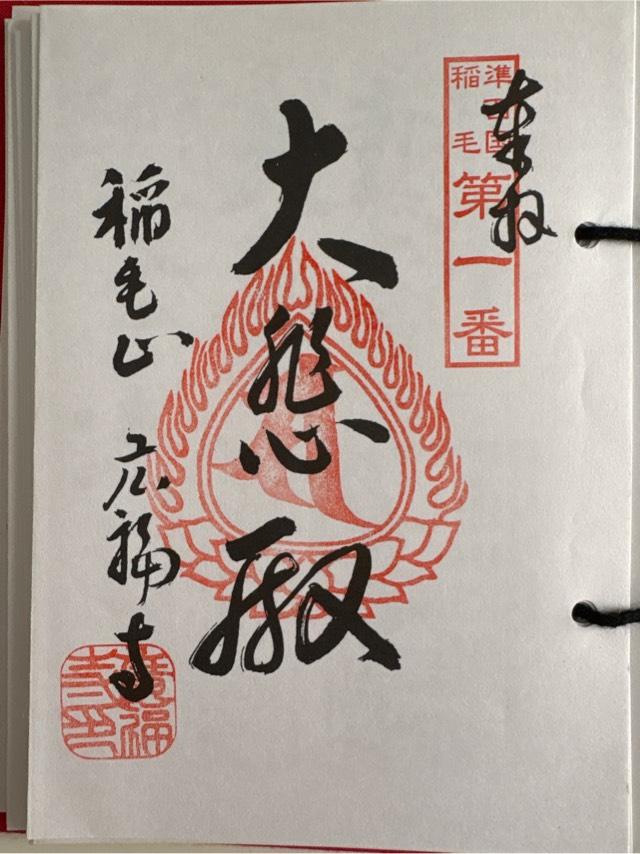 奉拝
準四国
稲毛
第一番
大悲殿
稲毛山 広福寺
廣福
寺印